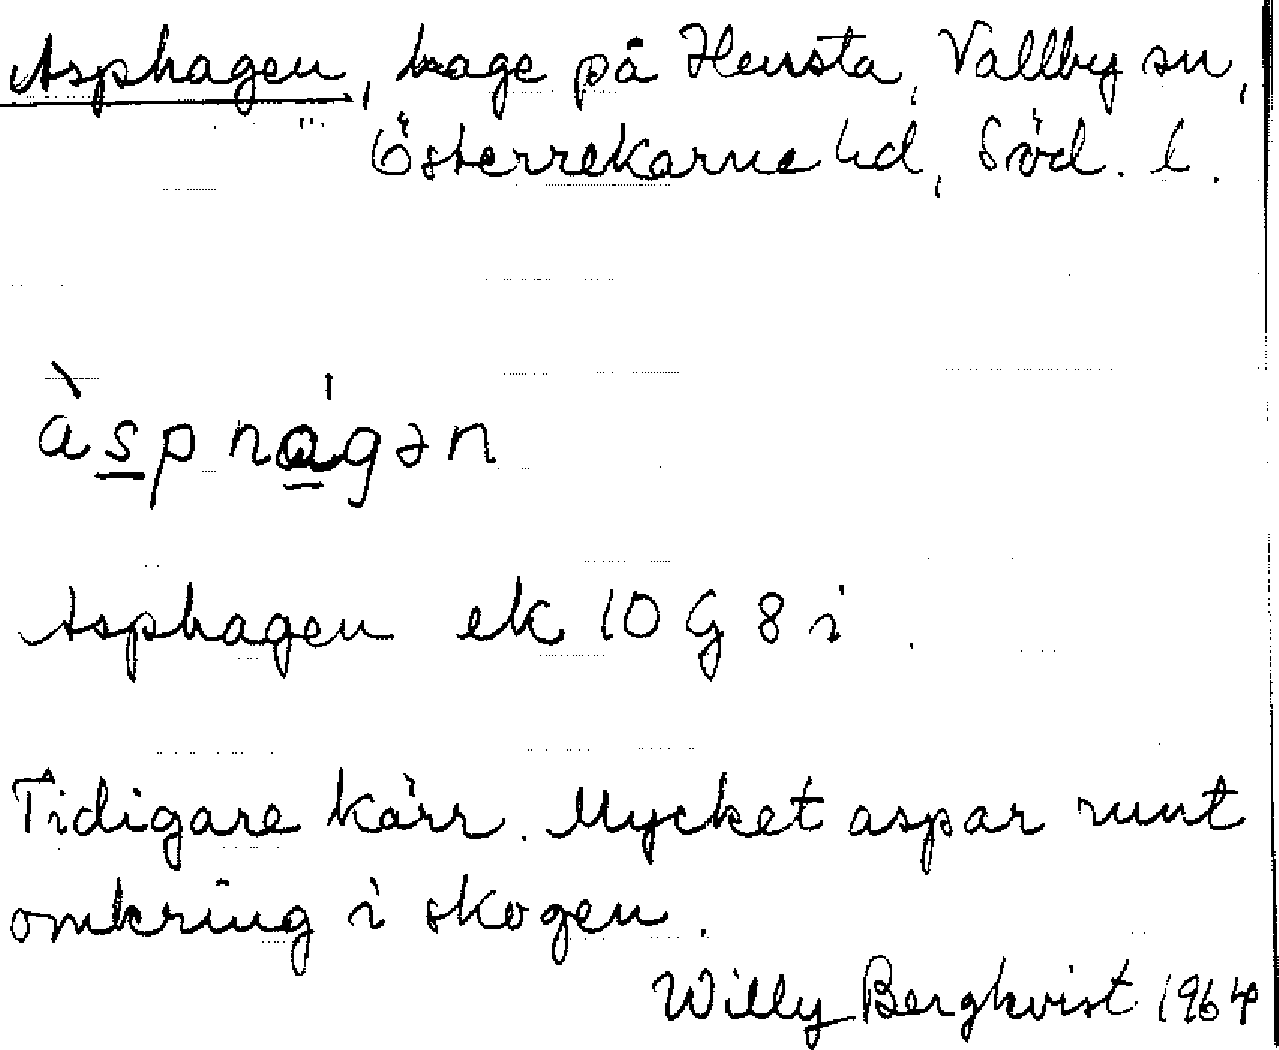 Asphagen, hage på Hensta, Vallby sn,
Österrekarne hd, Söd. l.
àsphágən
Asphagen ek 10 G 8 i.
Tidigare kärr. Mycket aspar runt
omkring i skogen.
Willy Bergkvist 1964